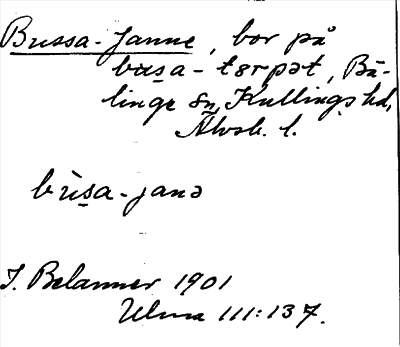 Bussa-Janne, bor på
bùsa-tørpət, Bä-
linge sn, Kullings hd,
Älvsb. l.
bùsa-janə
J. Belanner 1901
Ulma 111:137.